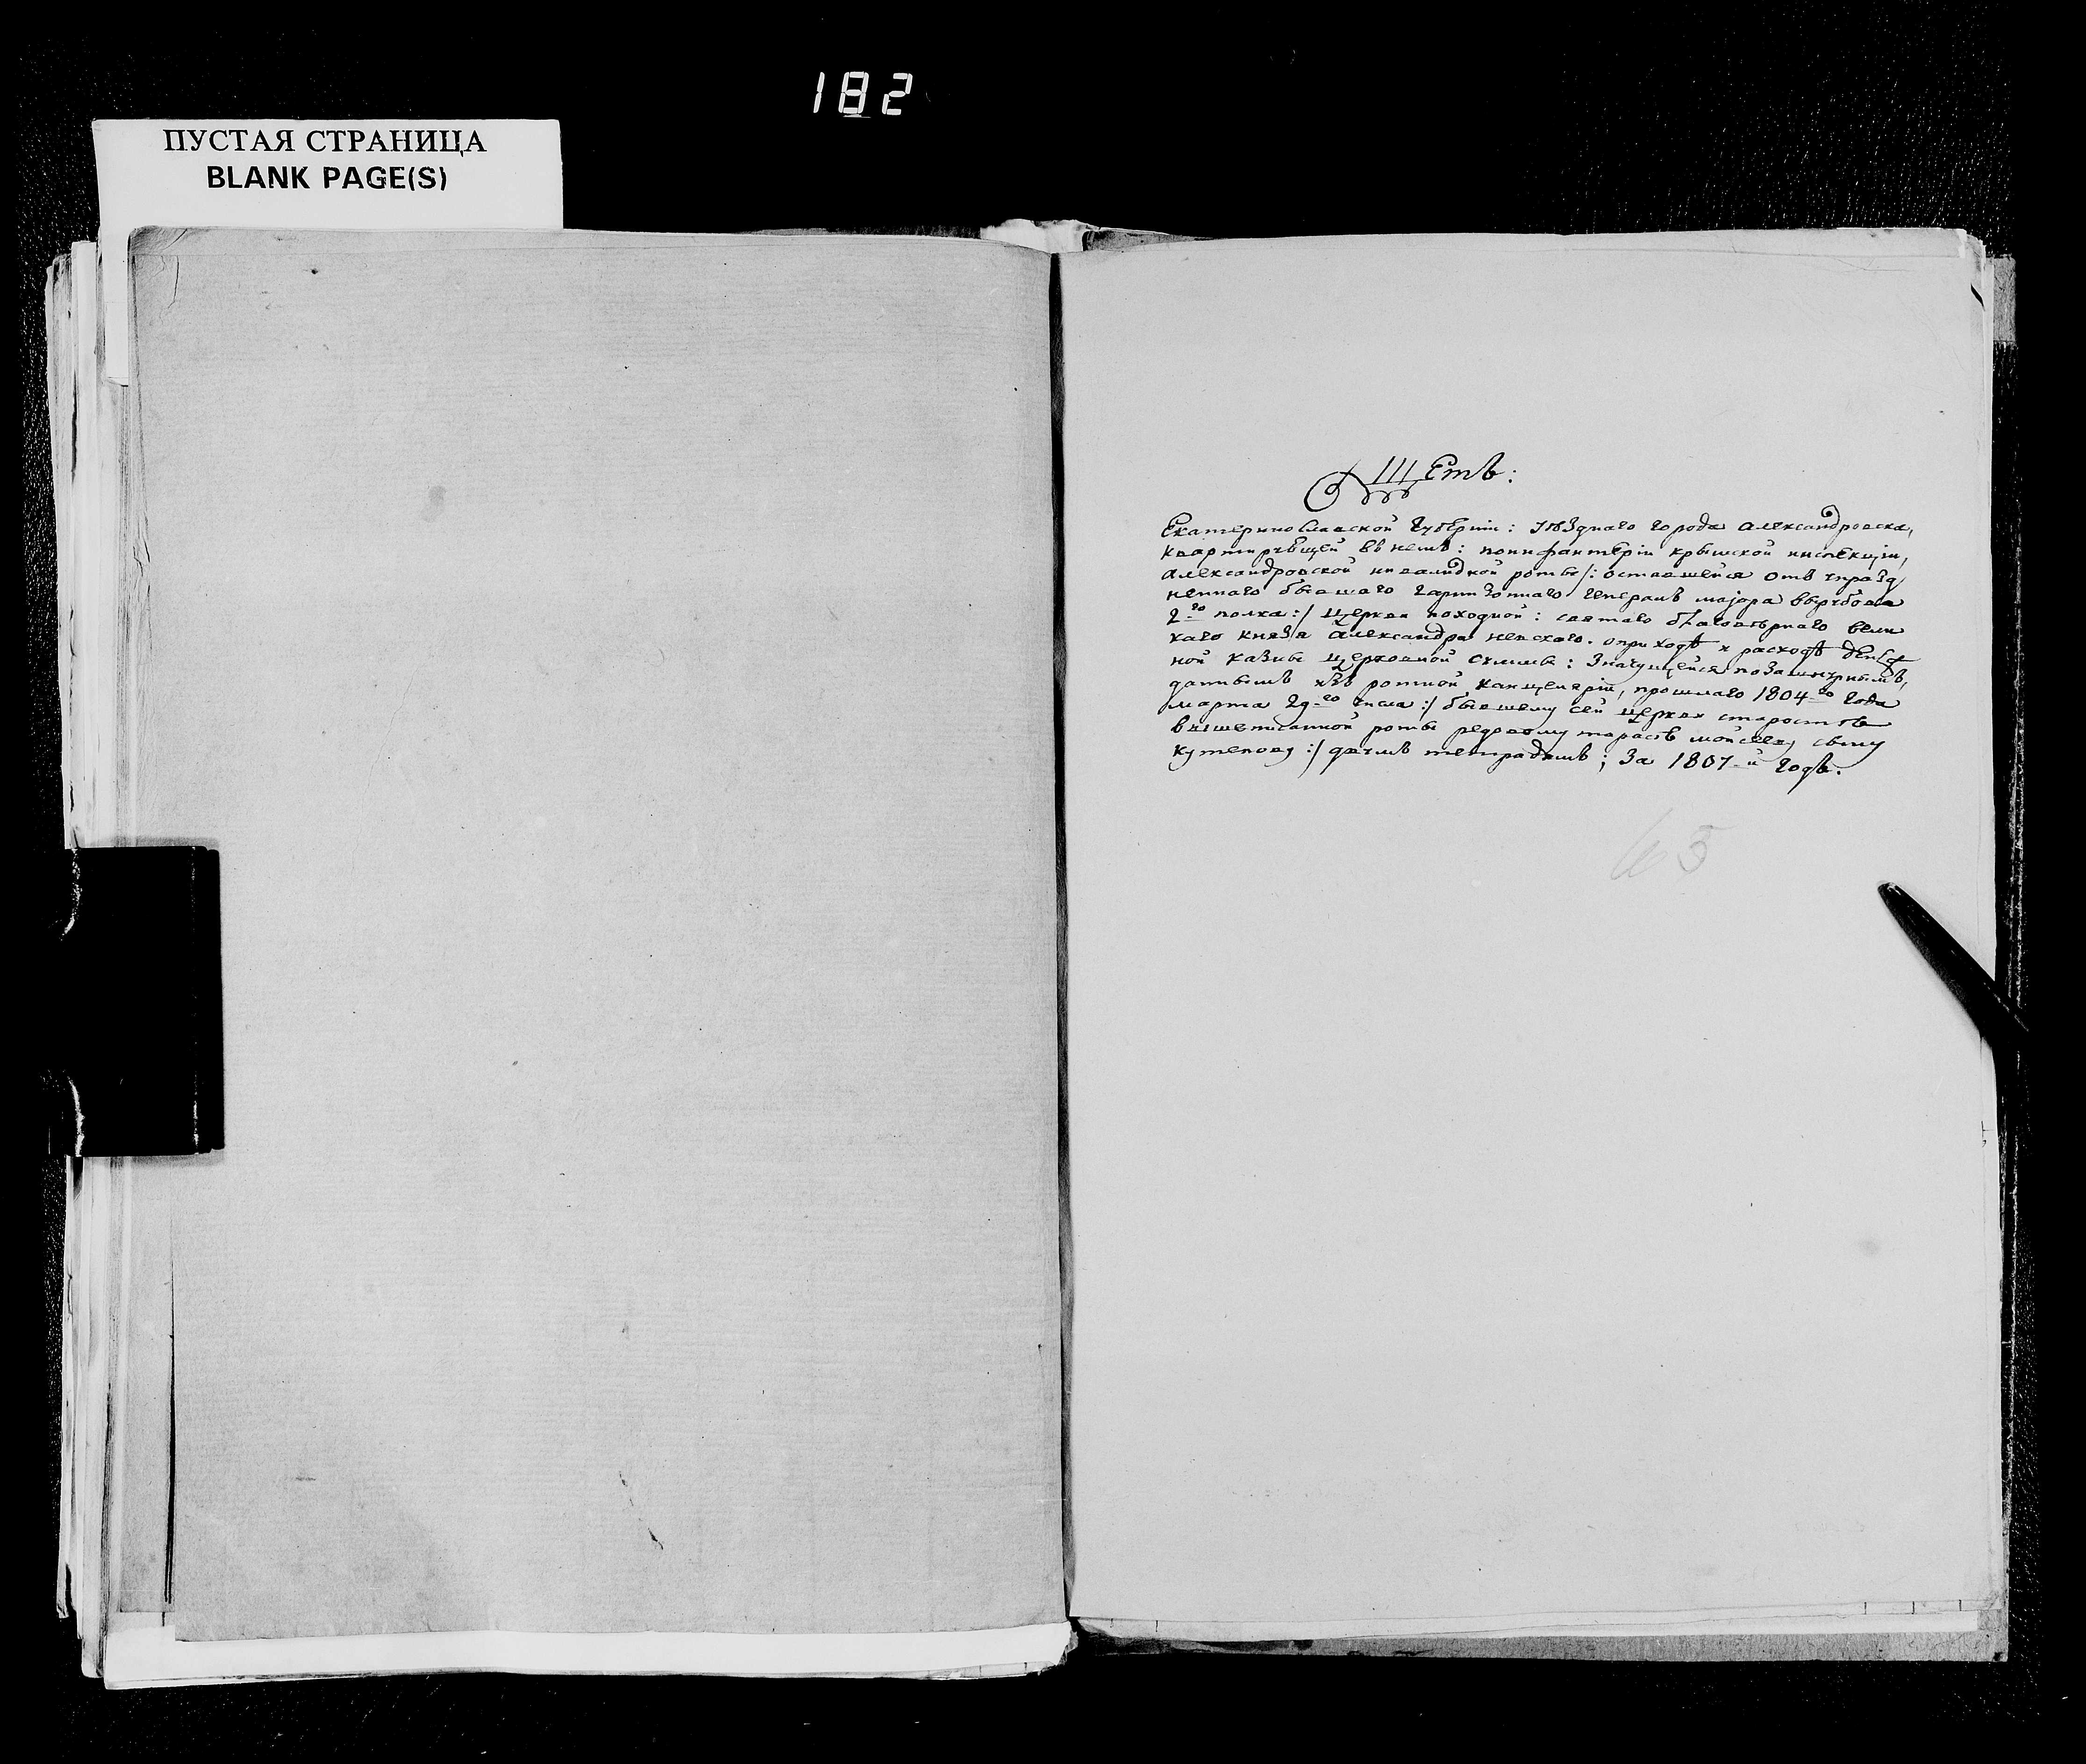 182
ПУСТАЯ СТРАНИЦА
BLANK PAGE(S)
Щетъ:
Екатеринославской губерніи: уѣзднаго города александровска,
квартирующей въ немъ: поинфантеріи крымской инспекціи,
александровской инвалидной роты /: оставшейся отъ упразд
неннаго бывшаго гарнизоннаго генералъ маіора вырубова
2-го полка :/ церкви походной: святаго благовѣрнаго вели
каго князя александра невскаго. о приходѣ и расходѣ денеж
ной казны церковной суммы: значущейся по зашнурнымъ,
даннымъ изъ ротной канцеляріи, прошлаго 1804-го года
марта 29-го числа :/ бывшему сей церкви старостѣ
вышеписанной роты редовому тарасѣ мойсееву сыну
кутепову :/ двумъ тетрадямъ; за 1807-й годъ.
63